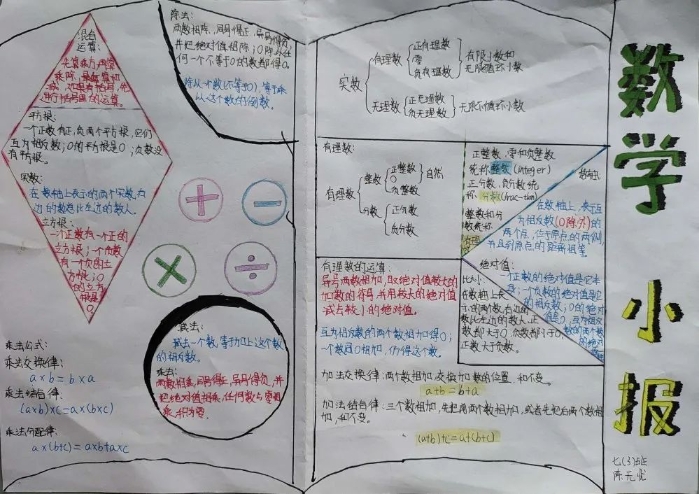 混合
运算:
平方根:
一个正数有正,负两个平方根,它们
互为相反数;0的平方根是0;负数没
有平方根。
实数:
在数轴上表示的两个实数,右
边的数总比左边的数大。
立方根:
一个正数有一个正的
立方根;一个负数
有一个负的立
方根;0
的立方
根是
0
除法:
两数相除,同号得正,异号得负,
并把绝对值相除;0除以任
何一个不等于0的数都得0。
除以一个数(不等于0),等于乘
以这个数的倒数。
减法:
减去一个数,等于加上这个数
的相反数。
乘法:
两数相乘,同号得正,异号得负,并
把绝对值相乘,任何数与零相
乘,积为零。
乘法公式:
乘法交换律:
a×b=b×a
乘法结合律:
(a×b)×c=a×(b×c)
乘法分配律:
a×(b+c)=a×b+a×c
实数
有理数
正有理数
零
负有理数
有限小数和
无限循环小数
无理数
正无理数
负无理数
无限不循环小数
有理数:
有理数
整数
正整数
0
负整数
自然
分数
正分数
负分数
正整数、零和负整数
统称整数(integer)
正分数、负分数统
称分数
整数和分
数统称
在数轴上,表示互
为相反数(0除外)的
两个点,位于原点的两侧,
并且到原点的距离相等
有理数的运算:
异号两数相加,取绝对值较大的
加数的符号,并用较大的绝对值
减去较小的绝对值。
互为相反数的两个数相加得0;
一个数同0相加,仍得这个数。
绝对值:
一个正数的绝对值是它本
身;一个负数的绝对值是它
的相反数;0的绝对
值是0
比大小:
在数轴上表
示的两个数,右边的
数比左边的数大。正
数都大于0,负数都小于0,
正数大于负数。
加法交换律:两个数相加,交换加数的位置,和不变。
a+b=b+a
加法结合律:三个数相加,先把前两个数相加,或者先把后两个数相
加,和不变。
(a+b)+c=a+(b+c)
数学
小报
七(3)班